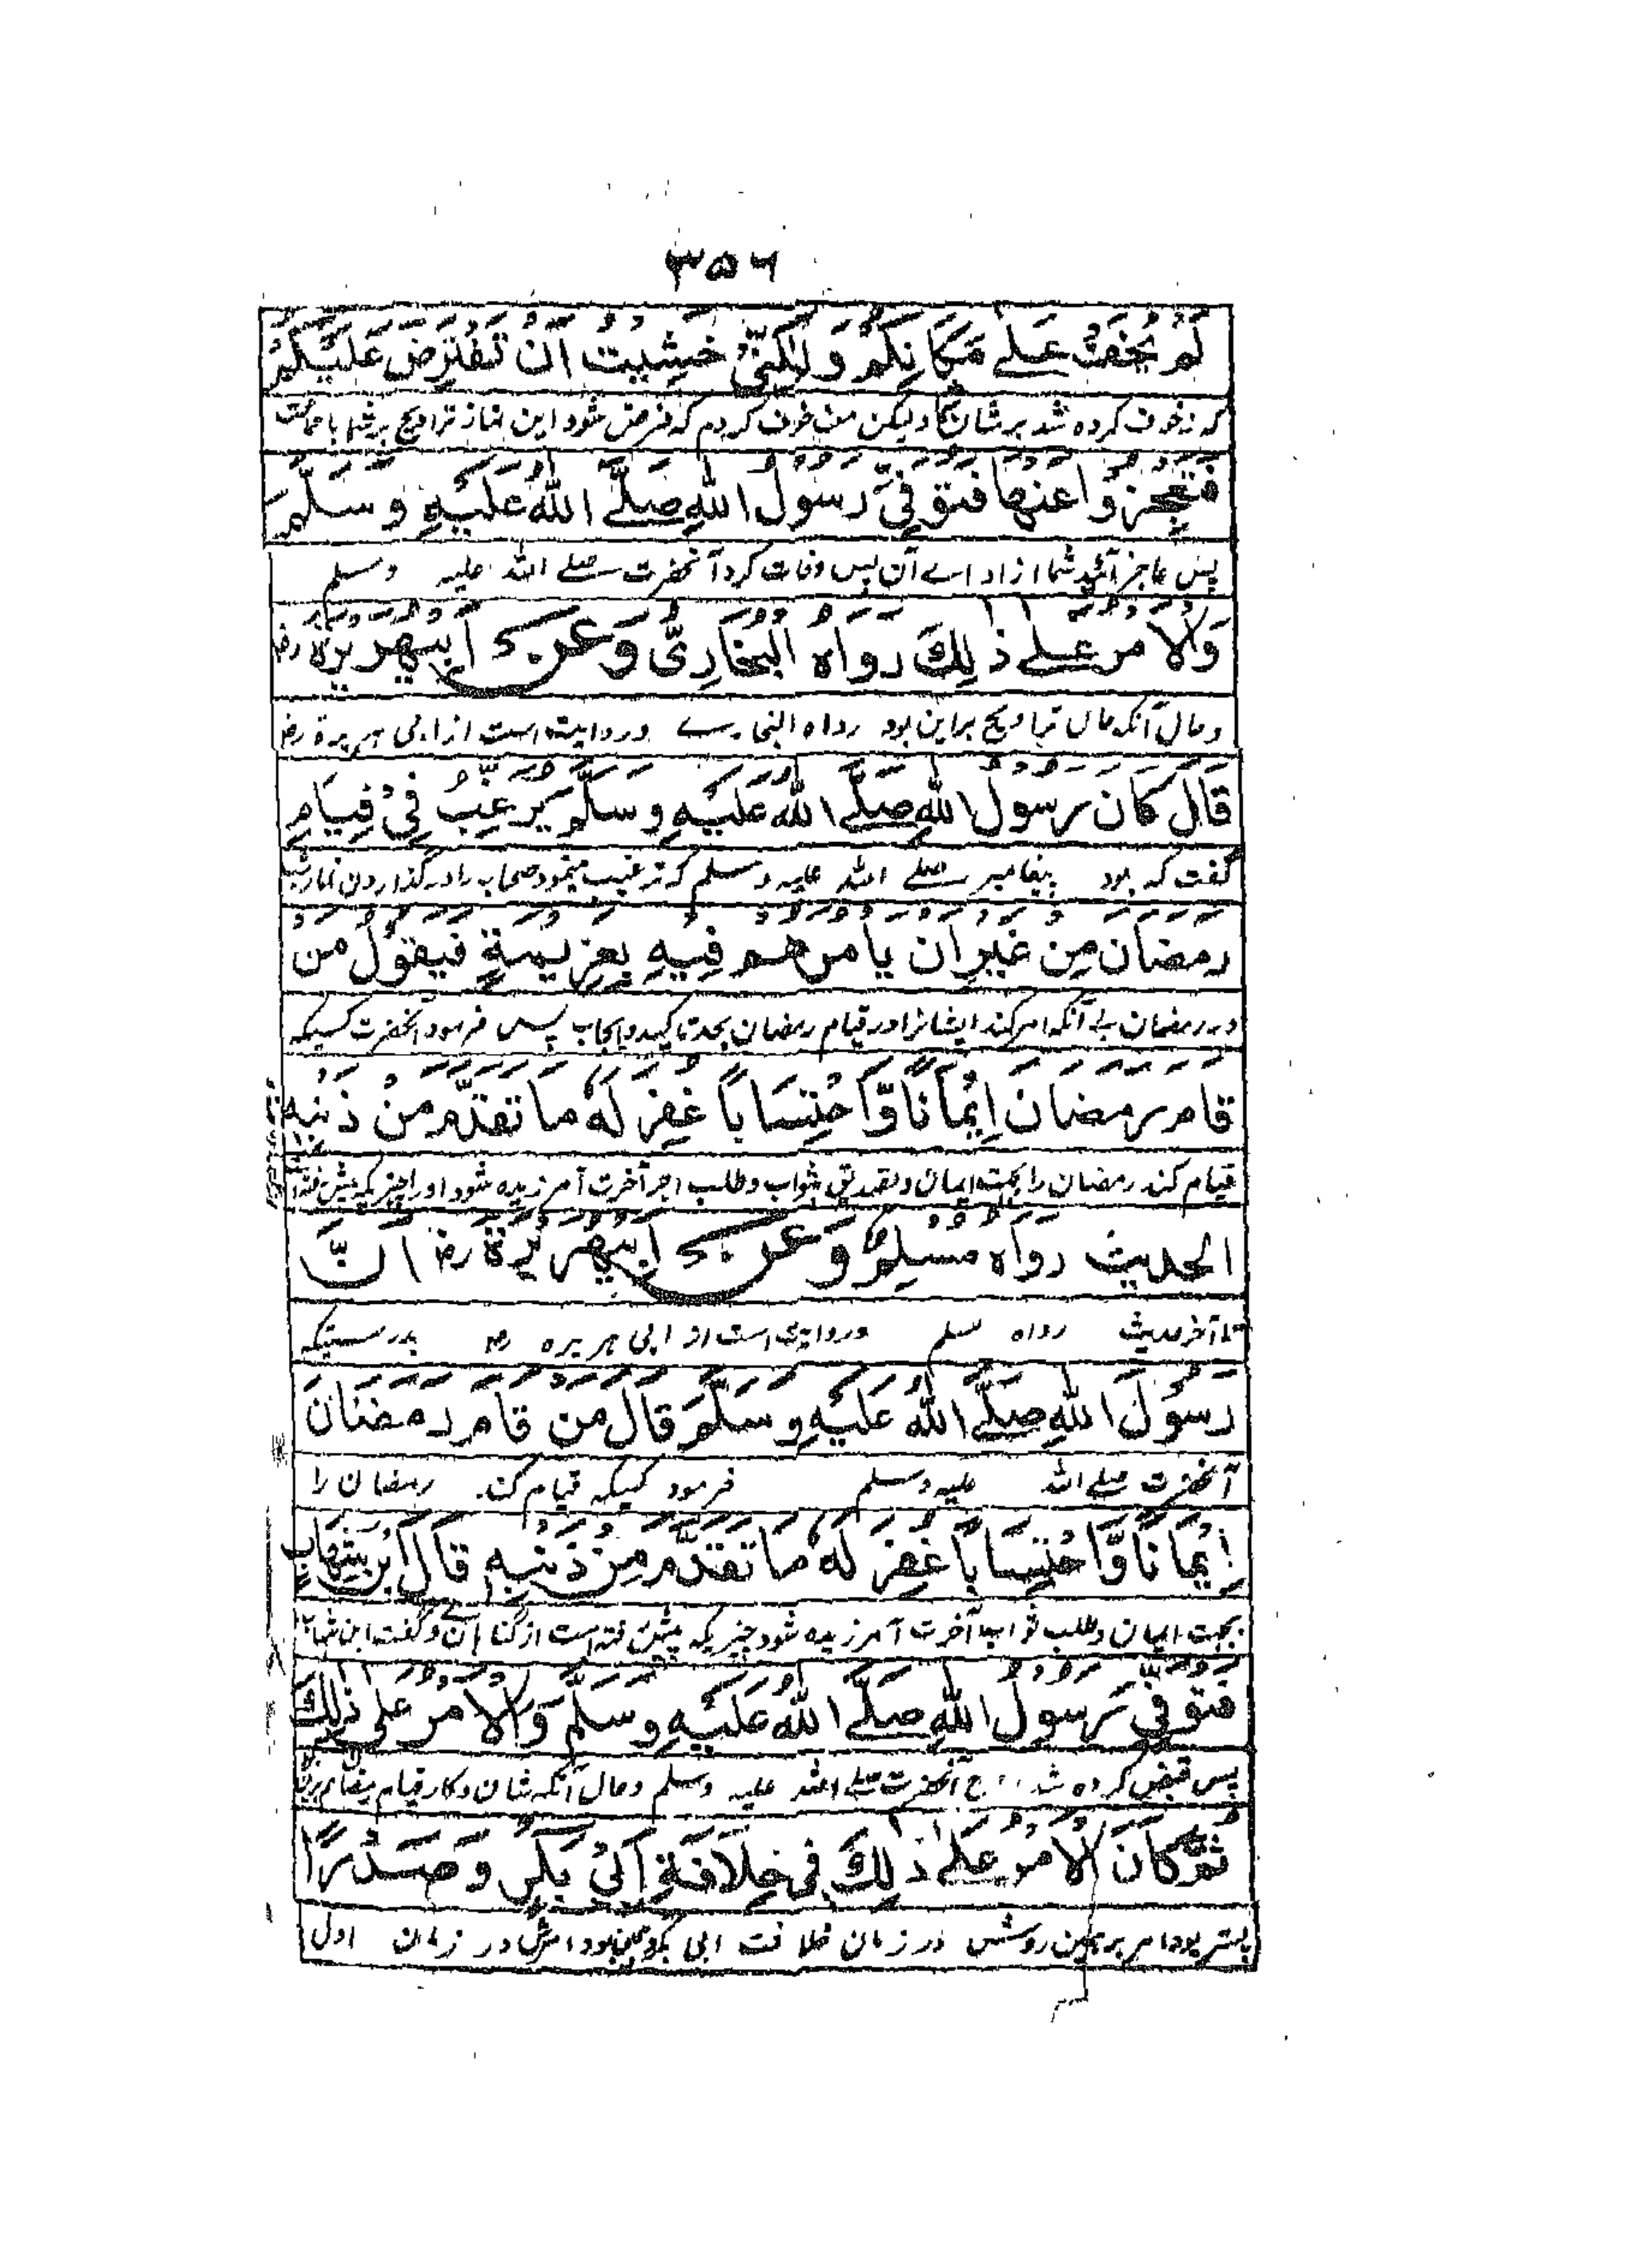 ۳۵۶
لَمْ يُخَفْ عَلٰے مَكَانِكُمْ وَلٰكِنِّیْ خَشِيْتُ اَنْ تُفْتَرَضَ عَلَيْكُمْ
كه نه خوف كرده شد بر شان شما و ليكن من خوف كردم كه فرض شود اين نماز تراويح بر شما باجماعت
فَتَعْجِزُوْا عَنْهَا فَتُوُفِّیَ رَسُوْلُ اللهِ صَلَّے اللهُ عَلَيْهِ وَسَلَّمَ
پس عاجز آئيد شما از اداے آن پس وفات كرد آنحضرت صلے الله عليه وسلم
وَالْاَمْرُ عَلٰے ذٰلِكَ رَوَاهُ الْبُخَارِیُّ وَعَنْ اَبِیْهُرَيْرَةَ رض
و حال آنكه حال تراويح بر اين بود رواه البخارے و روايت است از ابی هريرة رض
قَالَ كَانَ رَسُوْلُ اللهِ صَلَّے اللهُ عَلَيْهِ وَسَلَّمَ يُرَغِّبُ فِیْ قِيَامِ
گفت كه بود پيغامبر صلے الله عليه وسلم كه ترغيب مينمود صحابه را در گذاردن نماز
رَمَضَانَ مِنْ غَيْرِ اَنْ يَأْمُرَهُمْ فِيْهِ بِعَزِيْمَةٍ فَيَقُوْلُ مَنْ
در رمضان بے آنكه امر كند ايشانرا در قيام رمضان بجد تاكيد و ايجاب پس فرمود آنحضرت كسيكه
قَامَ رَمَضَانَ اِيْمَانًا وَّاحْتِسَابًا غُفِرَ لَهٗ مَا تَقَدَّمَ مِنْ ذَنْبِهٖ
قيام كند رمضان را بجهت ايمان و تصديق ثواب و طلب اجر آخرت آمرزيده شود او را چيزيكه پيش
الحديث رَوَاهُ مُسْلِمٌ وَعَنْ اَبِیْهُرَيْرَةَ رض اَنَّ
تا آخر حديث رواه مسلم و روايت است از ابی هريره رض بدرستيكه
رَسُوْلَ اللهِ صَلَّے اللهُ عَلَيْهِ وَسَلَّمَ قَالَ مَنْ قَامَ رَمَضَانَ
آنحضرت صلے الله عليه وسلم فرمود كسيكه قيام كند رمضان را
اِيْمَانًا وَّاحْتِسَابًا غُفِرَ لَهٗ مَا تَقَدَّمَ مِنْ ذَنْبِهٖ قَالَ ابْنُ شِهَابٍ
بجهت ايمان و طلب ثواب آخرت آمرزيده شود چيزيكه پيش رفته است از گناه آن و گفت ابن شهاب
فَتُوُفِّیَ رَسُوْلُ اللهِ صَلَّے اللهُ عَلَيْهِ وَسَلَّمَ وَالْاَمْرُ عَلٰی ذٰلِكَ
پس قبض كرده شد آنحضرت صلے الله عليه وسلم و حال آنكه شان و كار قيام رمضان
ثُمَّ كَانَ الْاَمْرُ عَلٰے ذٰلِكَ فِیْ خِلَافَةِ اَبِیْ بَكْرٍ وَصَدْرًا
پستر بود امر بر همين روشش در زمان خلافت ابی بكر و همچنين بود امرش در زمان اول